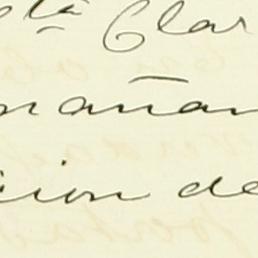 Sta Clar
mañan
cion de